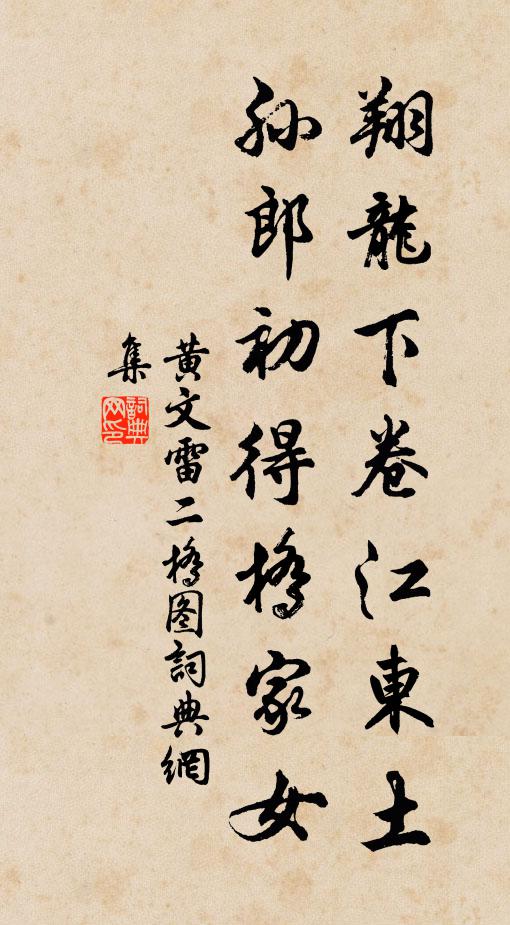 翔龍下卷江東土
孫郎初得橋家女
黃文雷二橋图詞典網
集
詞典網印